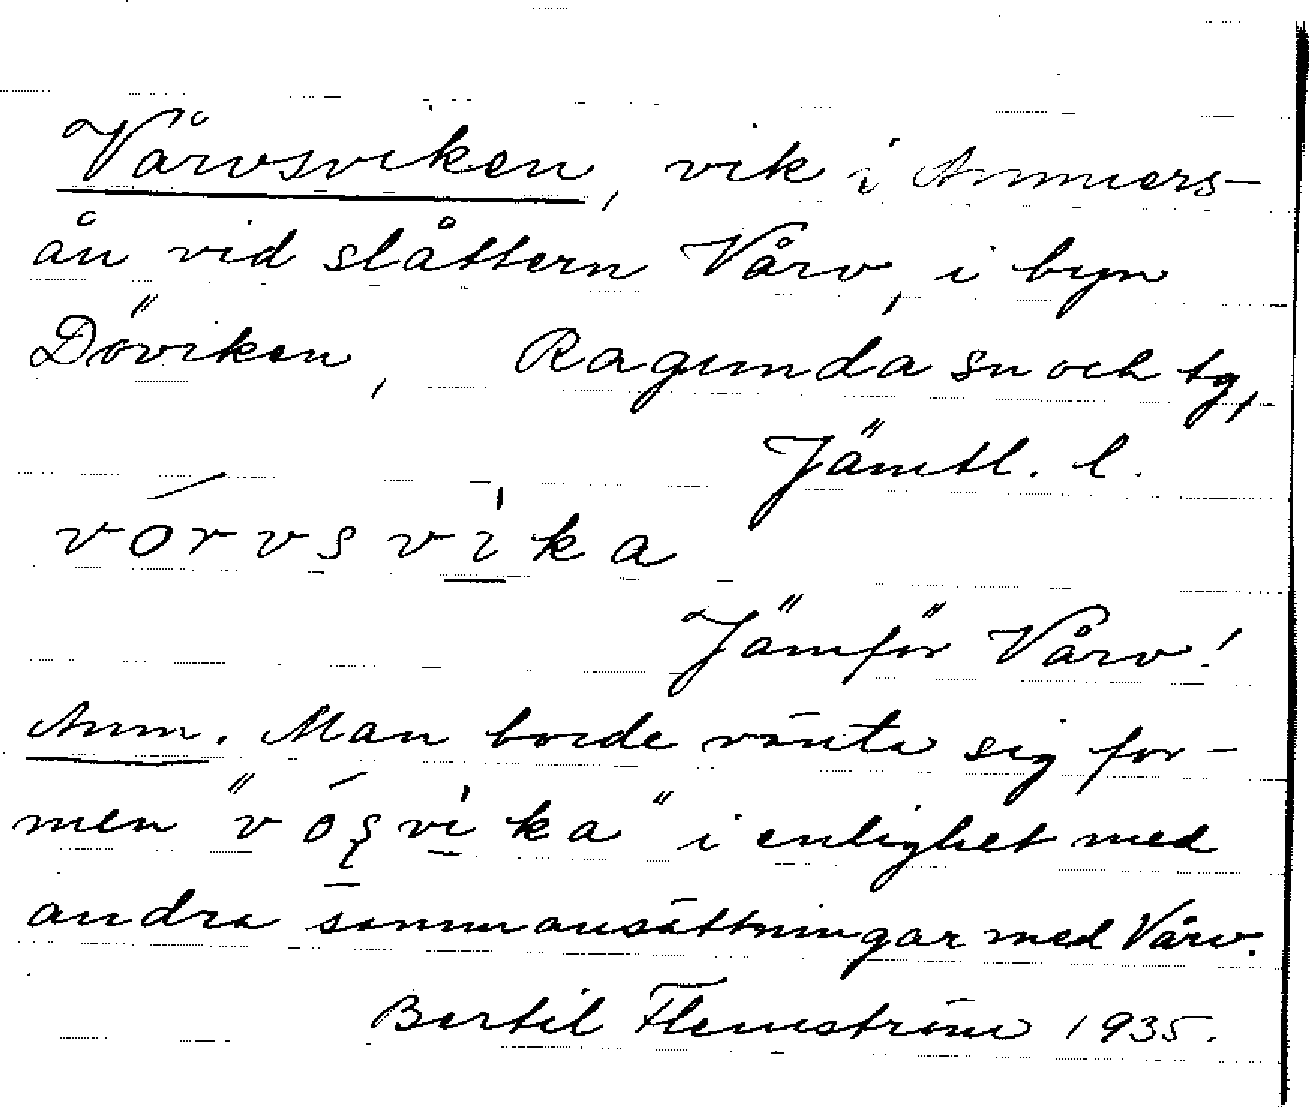 Vårvsviken, vik i Ammers-
ån vid slåttern Vårv, i byn
Döviken, Ragunda sn och tg,
Jämtl. l.
vórvsvìka
Jämför Vårv!
Anm. Man borde vänta sig for-
men "vóʂvìka" i enlighet med
andra sammansättningar med Vårv.
Bertil Flemström 1935.